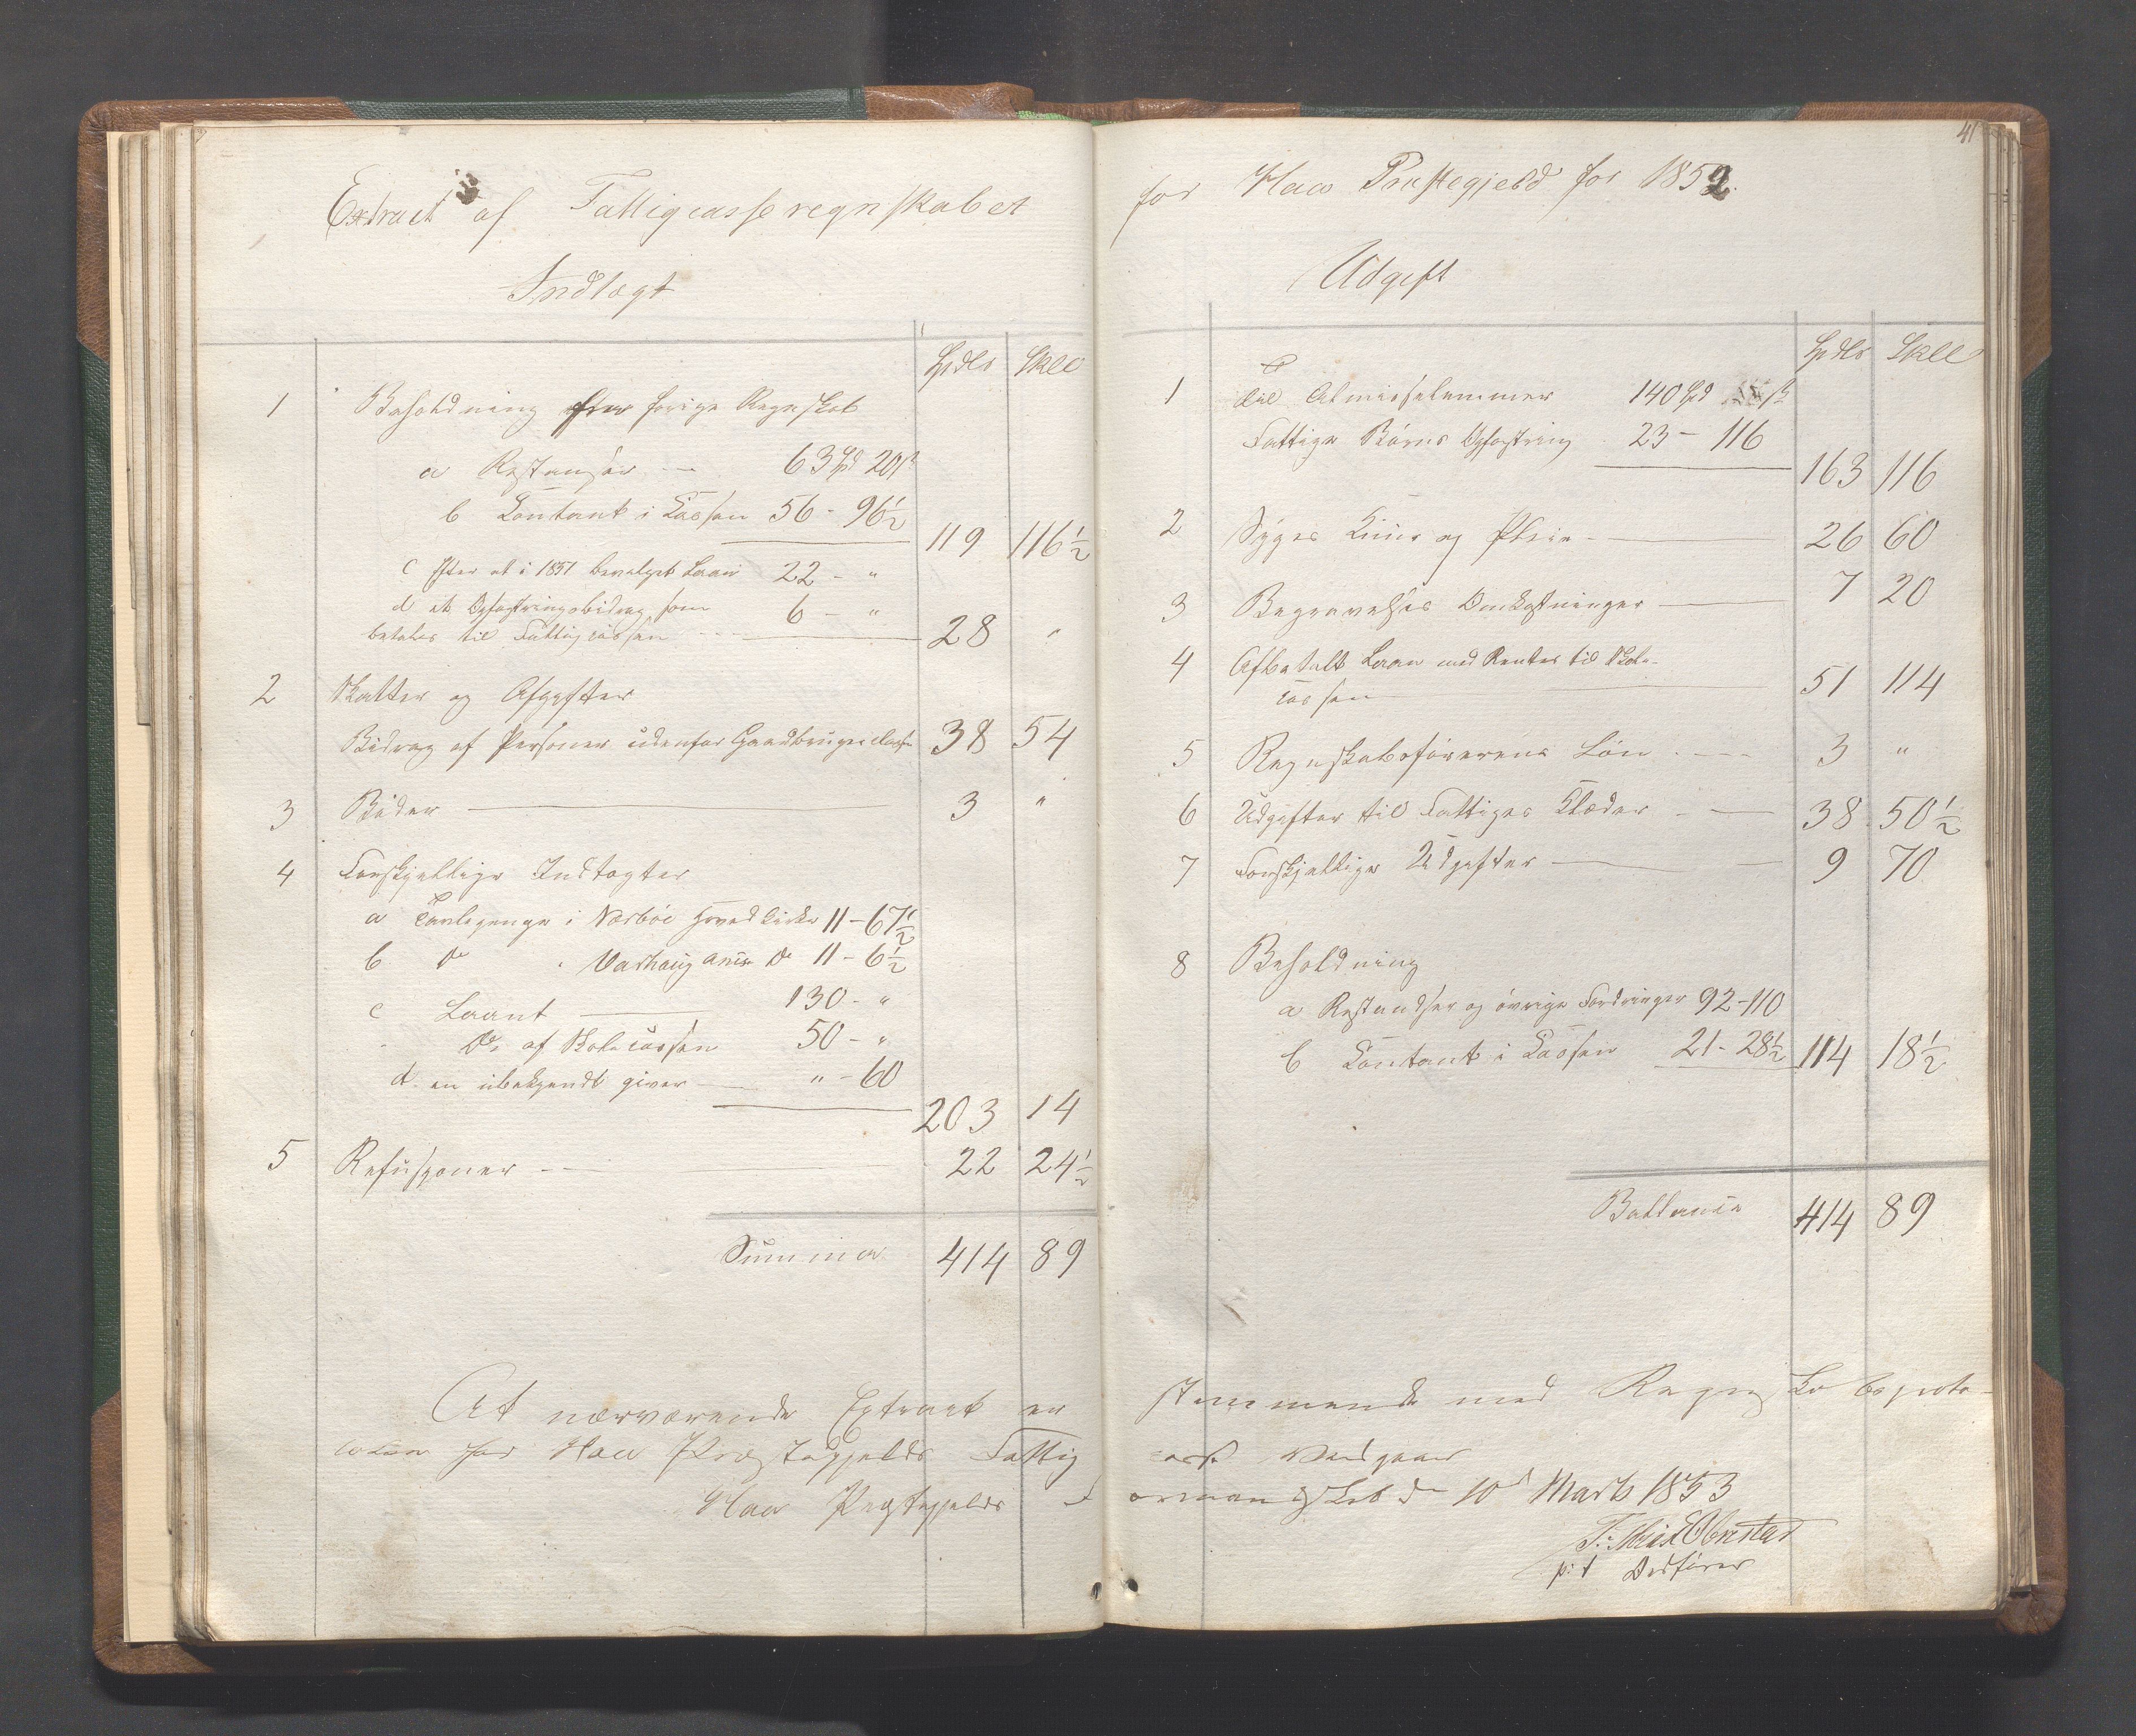 Extract af Fattigcasseregnskabet
Indtægt
Spdlr Skll
1 Beholdning fra forige Regnskab
a Restanser 63 Spd 20 ß
b Contant i Cassen 56 - 96½
119 116½
c efter et i 1851 bevelget Laan 22 - "
d et Opfostringsbidrag som 6 - "
betales til Fattigcassen 28 "
2 Skatter og Afgifter
Bidrag af Personer udenfor Gaardbrugerclassen 38 54
3 Bøder 3 "
4 Forskjellige Indtægter
a Tavlepenge i Nærbøe Hovedkirke 11 - 67½
b Do " Varhaug Anex Do 11 - 6½
c Laant 130 - "
Do af Skolecassen 50 - "
d en ubekjendt giver " - 60
203 14
5 Refusjoner 22 24½
Summa 414 89
At nærværende Extract er
for Haa Præstegjelds Fattig
Haa Præstegjelds
41
for Haa Præstegjeld for 1852.
Udgift
Spdlr Skll
1 Til Almisselemmer 140 Spd ß
Fattige Børns Opfostring 23 - 116
163 116
2 Syges Kuur og Pleie 26 60
3 Begravelses Omkostninger 7 20
4 Afbetalt Laan med Renter til Skole-
cassen 51 114
5 Regnskabsførerens Løn 3 "
6 Udgifter til Fattiges Klæder 38 50½
7 Forskjellige Udgifter 9 70
8 Beholdning
a Restandser og øvrige Fordringer 92 - 110
b Contant i Cassen 21 - 28½ 114 18½
Ballance 414 89
stemmende med Regnskabsproto-
vedgaaes
ormandskab d 10d Marts 1853
Obrestad
p: t Ordfører